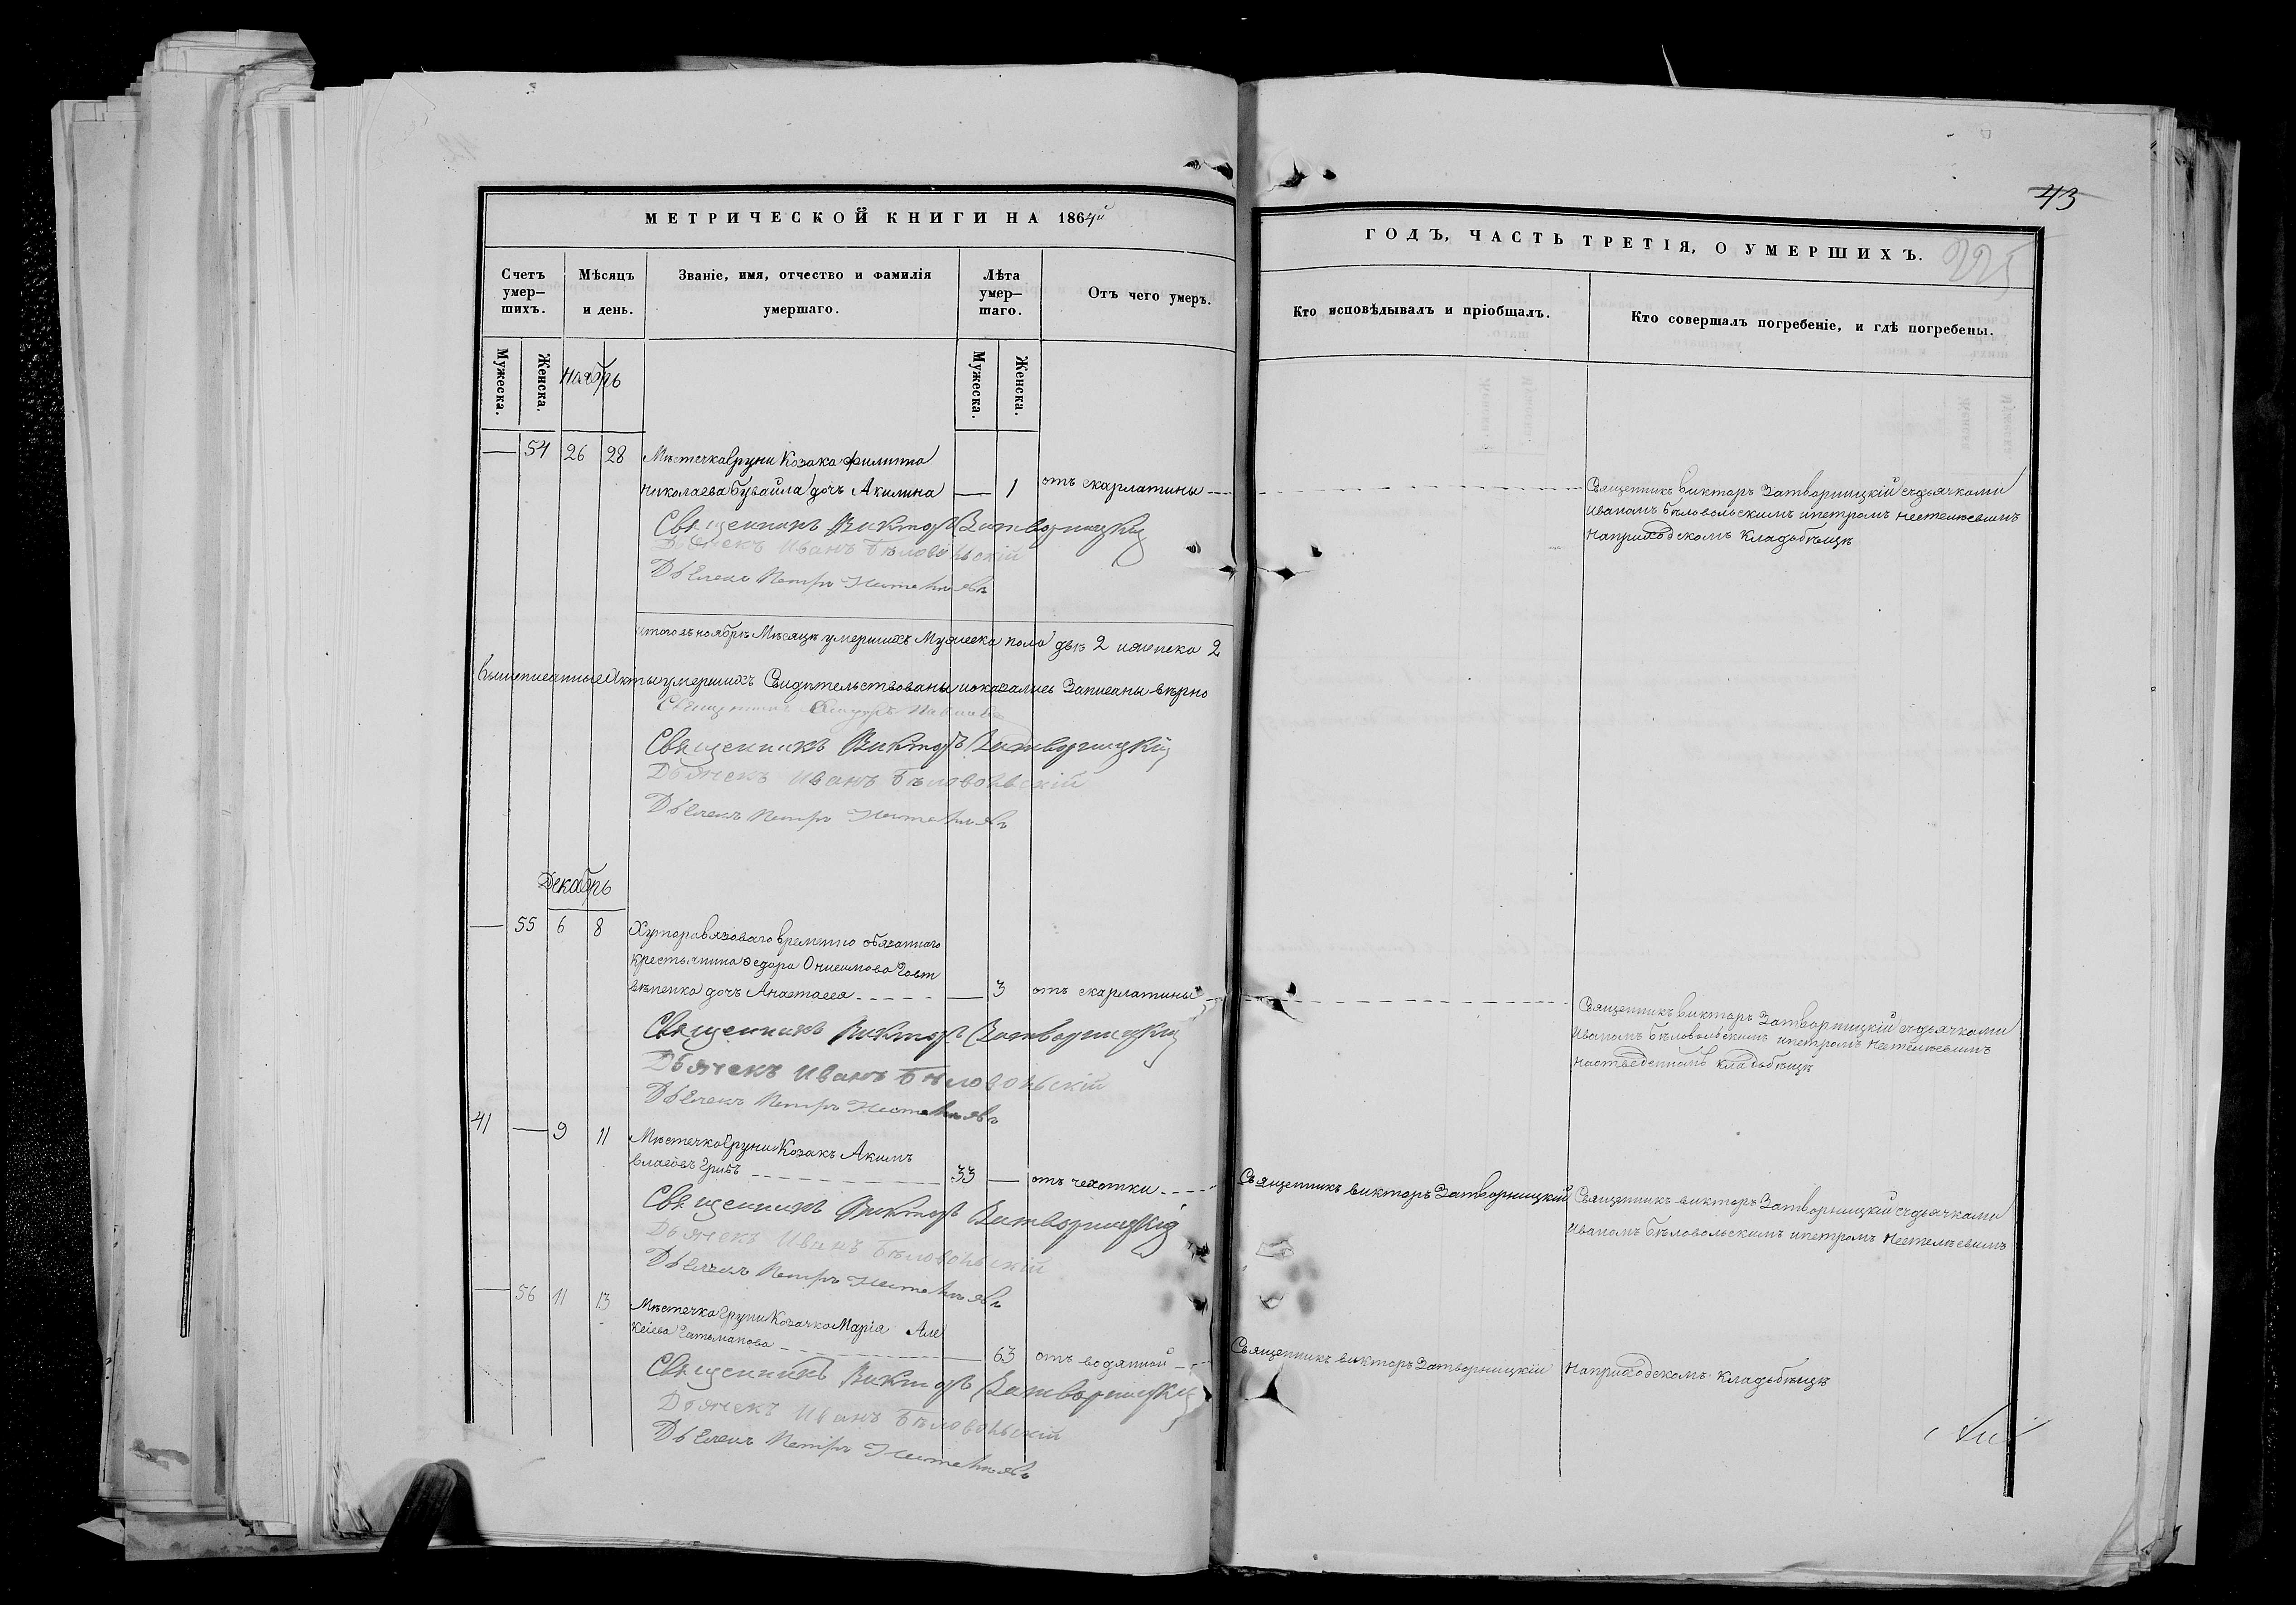 43
225
МЕТРИЧЕСКОЙ КНИГИ НА 1864й
ГОДЪ, ЧАСТЬ ТРЕТІЯ, О УМЕРШИХЪ.
Счетъ умер-шихъ.
Мѣсяцъ и день.
Званіе, имя, отчество и фамилія умершаго.
Лѣта умер-шаго.
Отъ чего умеръ.
Кто исповѣдывалъ и пріобщалъ.
Кто совершалъ погребеніе, и гдѣ погребены.
Мужеска.
Женска.
Ноябрь
Мужеска.
Женска.
— 54 26 28 Мѣстечка Груни Козака Филиппа
Николаева Бувайла дочь Акилина — 1 отъ скарлатины
Священникъ Викторъ Затворницкій съ дьячками
Иваномъ Бѣловольскимъ и Петромъ
на приходскомъ кладьбѣщѣ
Священникъ Викторъ Затворницкій
Дьячекъ Иванъ Бѣловольскій
Дьячекъ Петръ
итого въ ноябрѣ Мѣсяцѣ умершихъ Мужеска пола два 2 и женска 2
Вышеписанные Акты умершихъ Свидѣтельствованы и оказались Записаны вѣрно
Священникъ
Священникъ Викторъ Затворницкій
Дьячекъ Иванъ Бѣловольскій
Дьячекъ Петръ
Декабрь
— 55 6 8 Хутора Вязоваго временно обязаннаго
крестьянина Федора Онисимова Говт
вѣненка дочь Анастасея — 3 отъ скарлатины
Священникъ Викторъ Затворницкій съ дьячками
Иваномъ Бѣловольскимъ и Петромъ
кладьбѣщѣ
Священникъ Викторъ Затворницкій
Дьячекъ Иванъ Бѣловольскій
Дьячекъ Петръ
41 — 9 11 Мѣстечка Груни Козакъ Акимъ
Власовъ Грибъ 33 — отъ чехотки
Священникъ Викторъ Затворницкій
Священникъ Викторъ Затворницкій съ дьячками
Иваномъ Бѣловольскимъ и Петромъ
Священникъ Викторъ Затворницкій
Дьячекъ Иванъ Бѣловольскій
Дьячекъ Петръ
— 56 11 13 Мѣстечка Груни Козачка Марія Але
кѣіева Гатьманова — 63 отъ водянной
Священникъ Викторъ Затворницкій
на приходскомъ кладьбѣщѣ
Священникъ Викторъ Затворницкій
Дьячекъ Иванъ Бѣловольскій
Дьячекъ Петръ